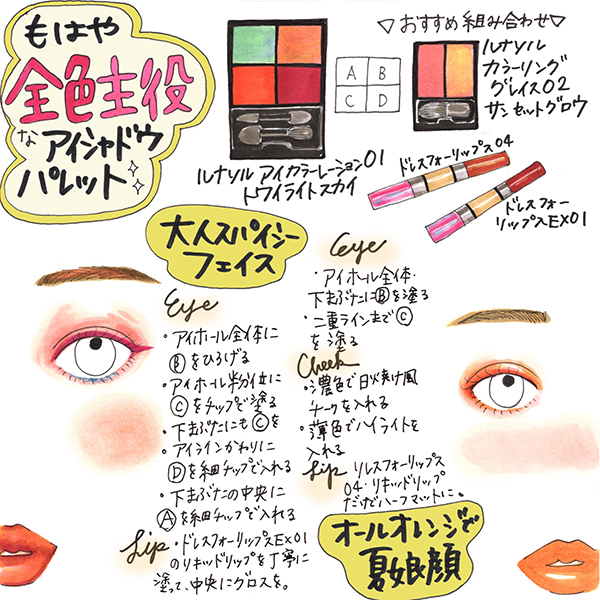 もはや
全色主役
な アイシャドウ
パレット
▽おすすめ組み合わせ▽
A B
C D
ルナソル
カラーリング
グレイス02
サンセットグロウ
ルナソル アイカラーレーション01
トワイライトスカイ
ドレスフォーリップス04
ドレスフォー
リップスEX01
大人スパイシー
フェイス
Eye
・アイホール全体に
Ⓑをひろげる
・アイホール半分位に
Ⓒをチップで塗る
・下まぶたにもⒸを
・アイラインがわりに
Ⓓを細チップで入れる
・下まぶたの中央に
Ⓐを細チップで入れる
Lip・ドレスフォーリップスEX01
のリキッドリップを丁寧に
塗って、中央にグロスを。
Eye
・アイホール全体・
下まぶたにⒷを塗る
・二重ラインまでⒸ
を塗る
Cheek
・濃色で日焼け風
チークを入れる
・薄色でハイライトを
入れる
Lip ドレスフォーリップス
04・リキッドリップ
だけでハーフマットに。
オールオレンジで
夏娘顔